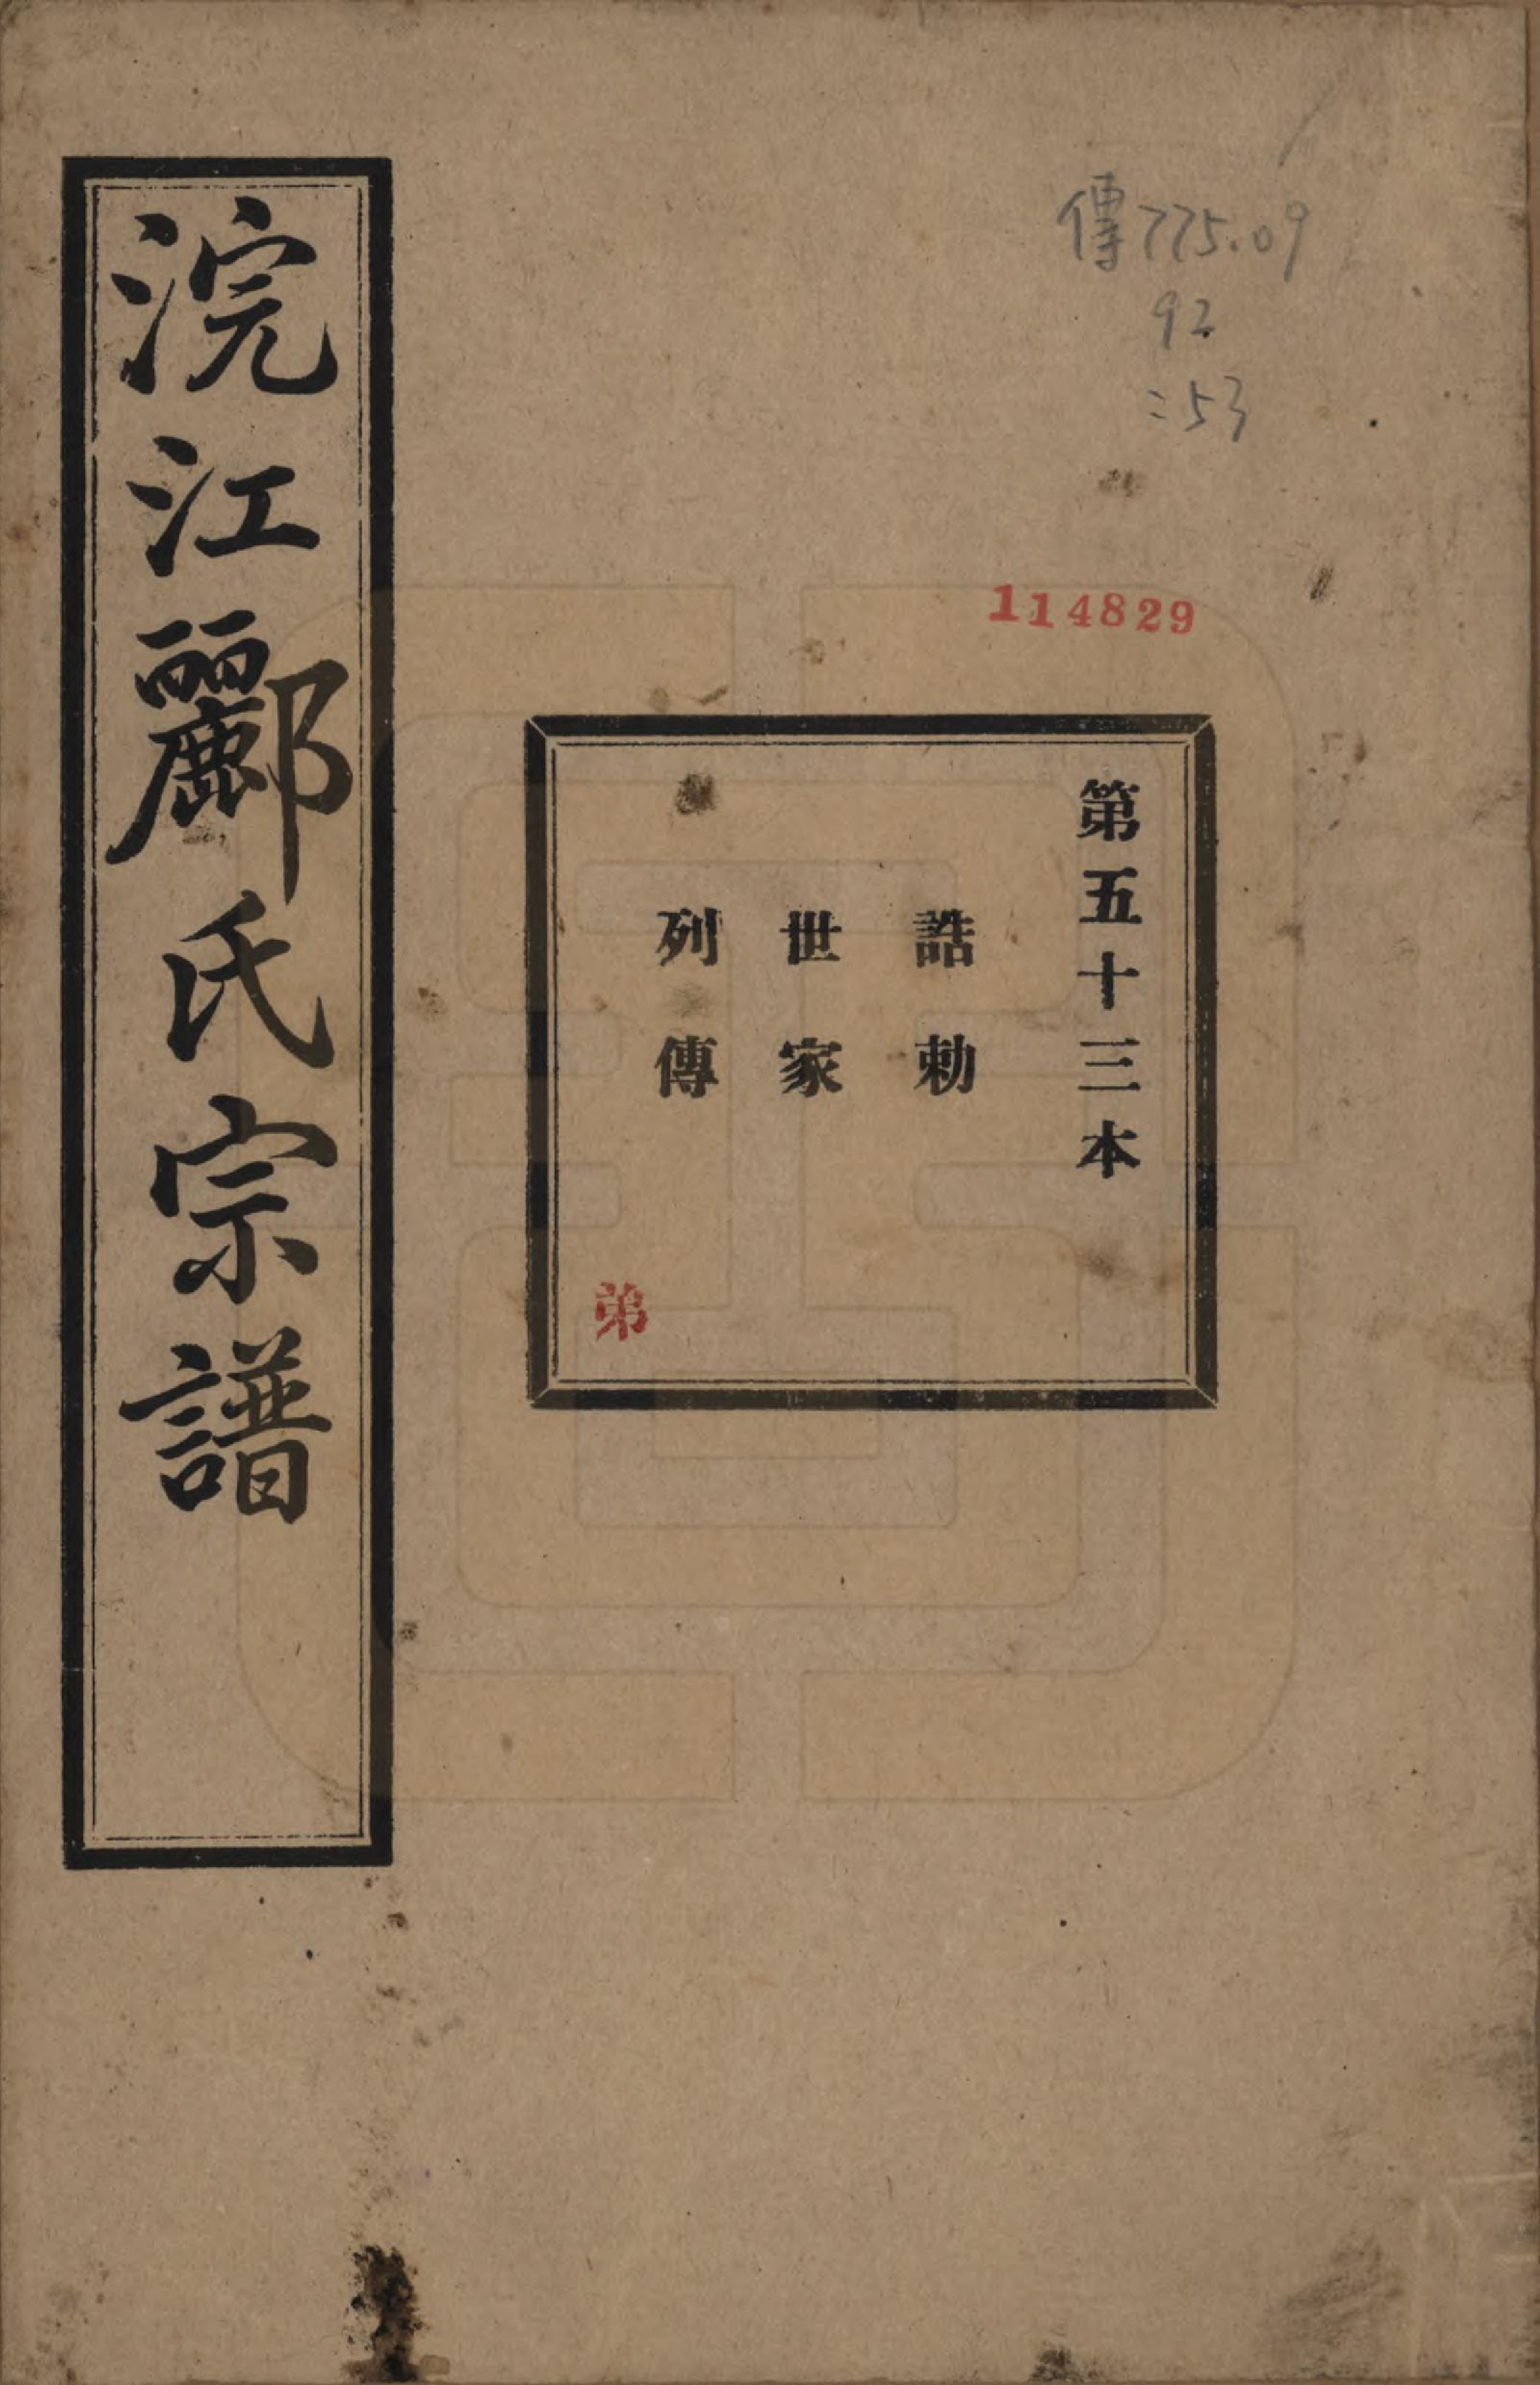 傳775.09
92
:53
114829
第五十三本
誥勅
世家
列傳
弟
浣江酈氏宗譜